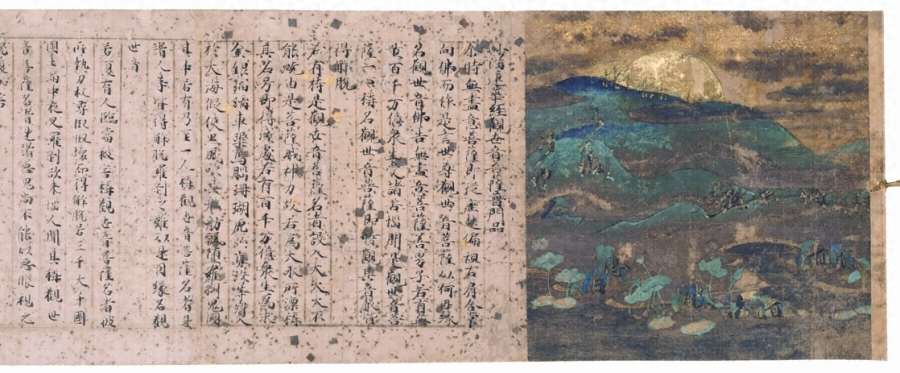 妙法蓮華經觀世音菩薩普門品
尒時無盡意菩薩即從座起偏袒右肩合掌
向佛而作是言世尊觀世音菩薩以何因緣
名觀世音佛告無盡意菩薩善男子若有無
量百千万億衆生受諸苦惱聞是觀世音菩
薩一心稱名觀世音菩薩即時觀其音聲皆
得解脫
若有持是觀世音菩薩名者設入大火火不
能燒由是菩薩威神力故若爲大水所漂稱
其名号即得淺處若有百千万億衆生爲求
金銀瑠璃車𤦲馬瑙珊瑚虎珀真珠等寶入
於大海假使黑風吹其船舫飄墮羅刹鬼國
其中若有乃至一人稱觀世音菩薩名者是
諸人等皆得解脫羅刹之難以是因緣名觀
世音
若復有人臨當被害稱觀世音菩薩名者彼
所執刀杖尋段段壞而得解脫若三千大千國
土滿中夜叉羅刹欲來惱人聞其稱觀世
音菩薩名者是諸惡鬼尚不能以惡眼視之